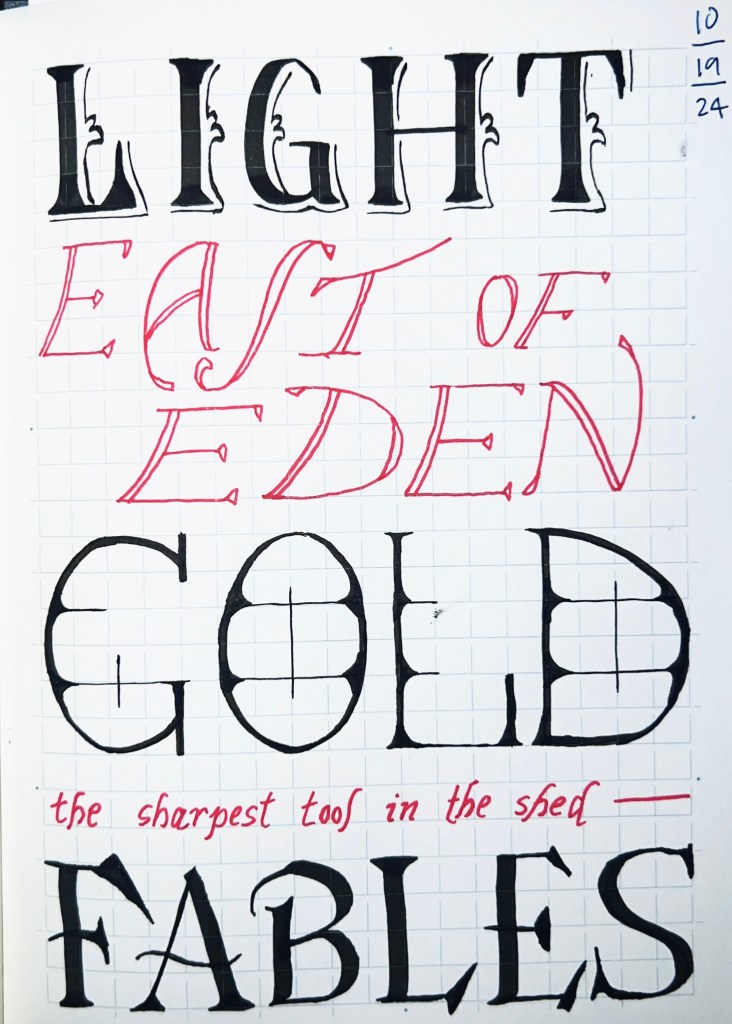 10
19
24
LIGHT
EAST OF
EDEN
GOLD
the sharpest tool in the shed —
FABLES